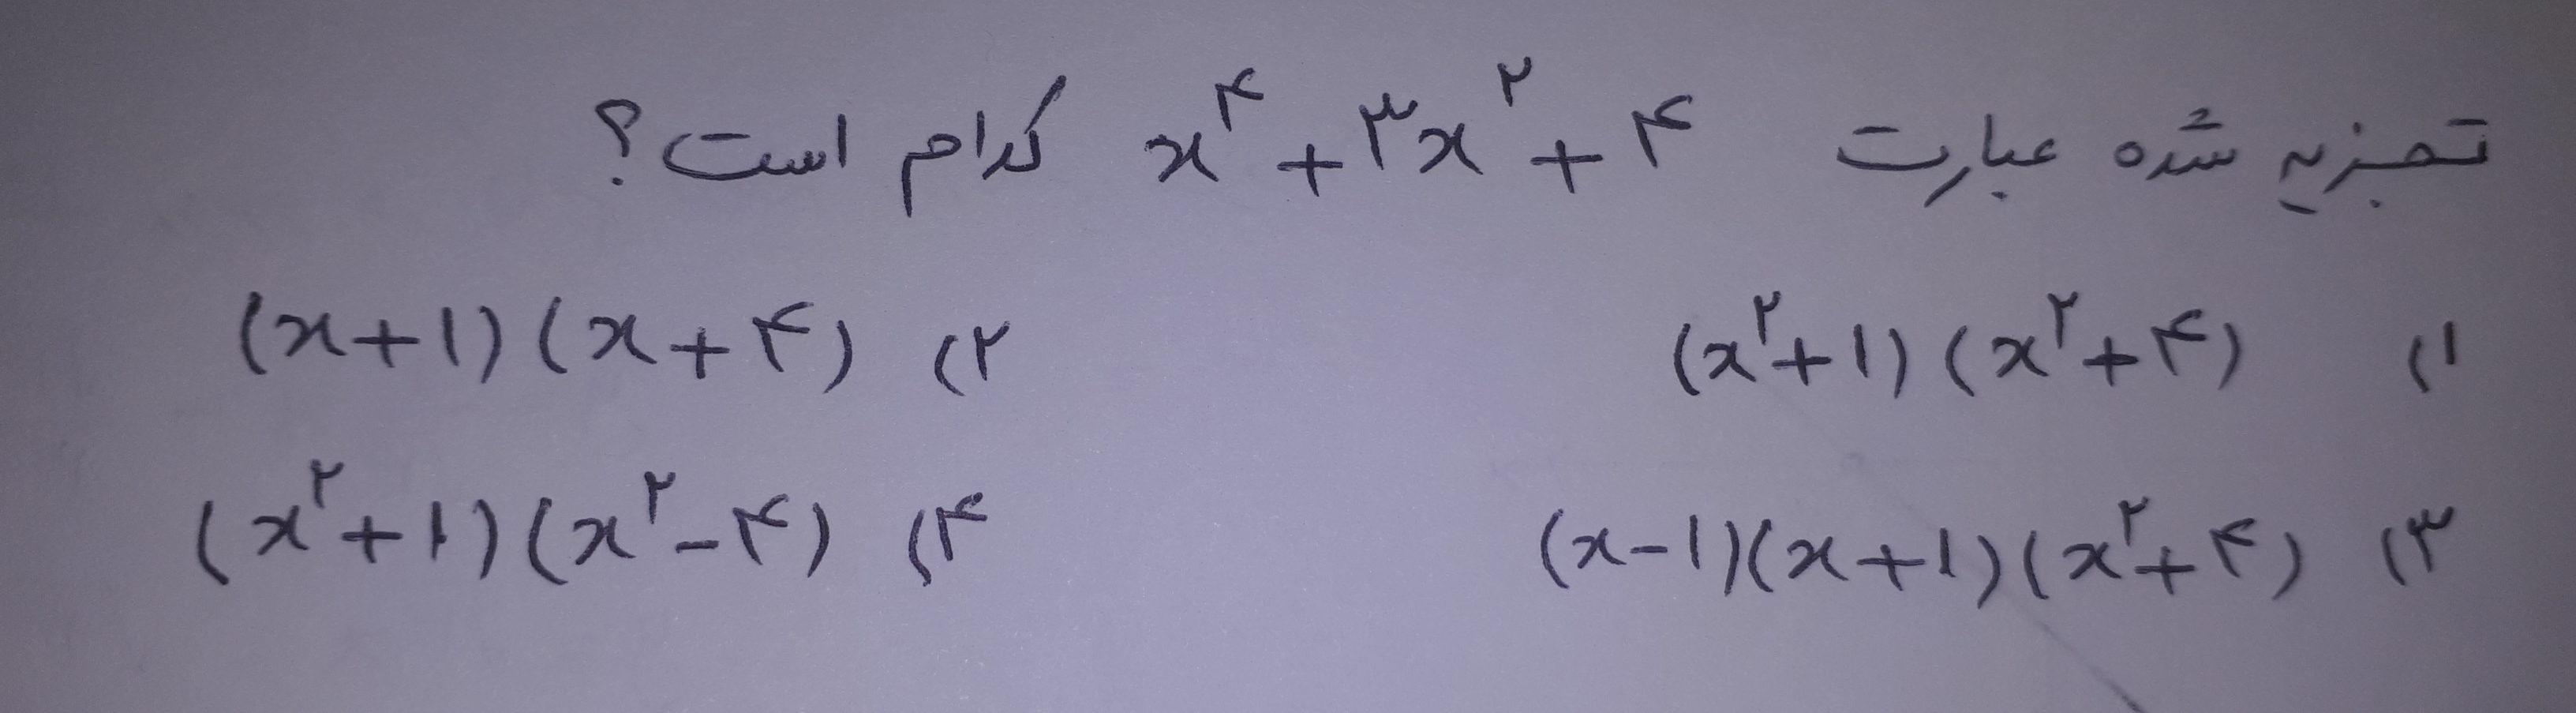 تجزیه شده عبارت x^۴ + ۳x^۲ + ۴ کدام است؟
۱) (x^۲+۱)(x^۲+۴) ۲) (x+۱)(x+۴)
۳) (x-۱)(x+۱)(x^۲+۴) ۴) (x^۲+۱)(x^۲-۴)